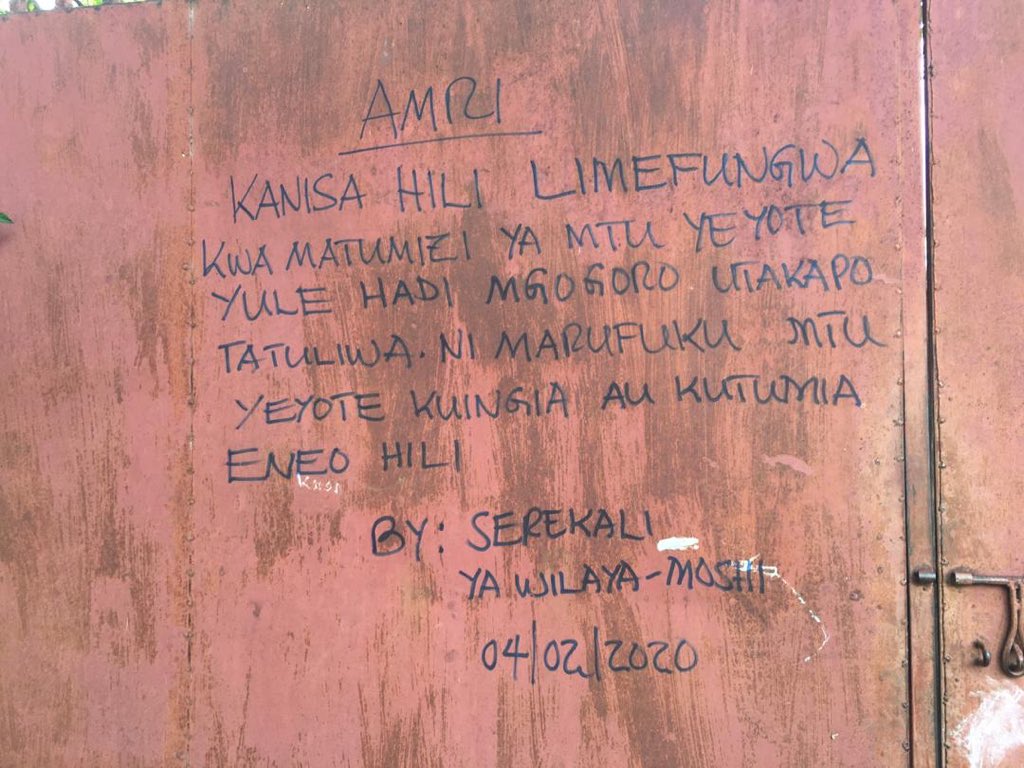 AMRI
KANISA HILI LIMEFUNGWA
KWA MATUMIZI YA MTU YEYOTE
YULE HADI MGOGORO UTAKAPO
TATULIWA. NI MARUFUKU MTU
YEYOTE KUINGIA AU KUTUMIA
ENEO HILI
BY: SEREKALI
YA WILAYA-MOSHI
04/02/2020